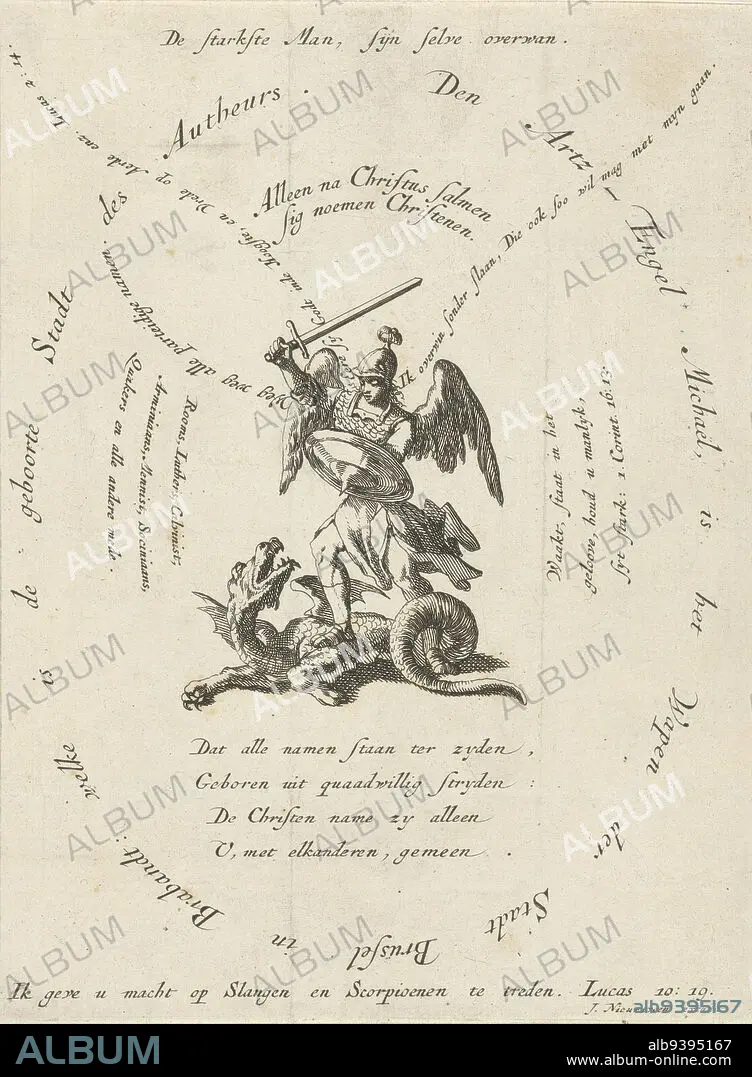 De starkste Man, sijn selve overwan.
Den Artz-Engel Michaël, is het Wapen der Stadt Brussel in Brabandt: welke is de geboorte Stadt des Autheurs.
Alleen na Christus salmen
sig noemen Christenen.
Godt inde Hoogste, en Vrede op Aerde enz. Lucas 2:14.
Ik overwin sonder slaan, Die ook soo wil mag met myn gaan.
Weg weg alle parteidige namen.
Rooms, Luthers, Calvinist,
Arminiaans, Mennist, Sociniaans,
Quakers en alle andere mede
Waakt, staat in het
geloove, houd u manlyk,
syt stark: 1. Corint. 16:13.
Dat alle namen staan ter zyden,
Geboren uit quaadwillig stryden:
De Christen name zy alleen
U, met elkanderen, gemeen.
Ik geve u macht op Slangen en Scorpioenen te treden. Lucas 10:19.
alb9395167
ALBUM
alb9395167
www.album-online.com